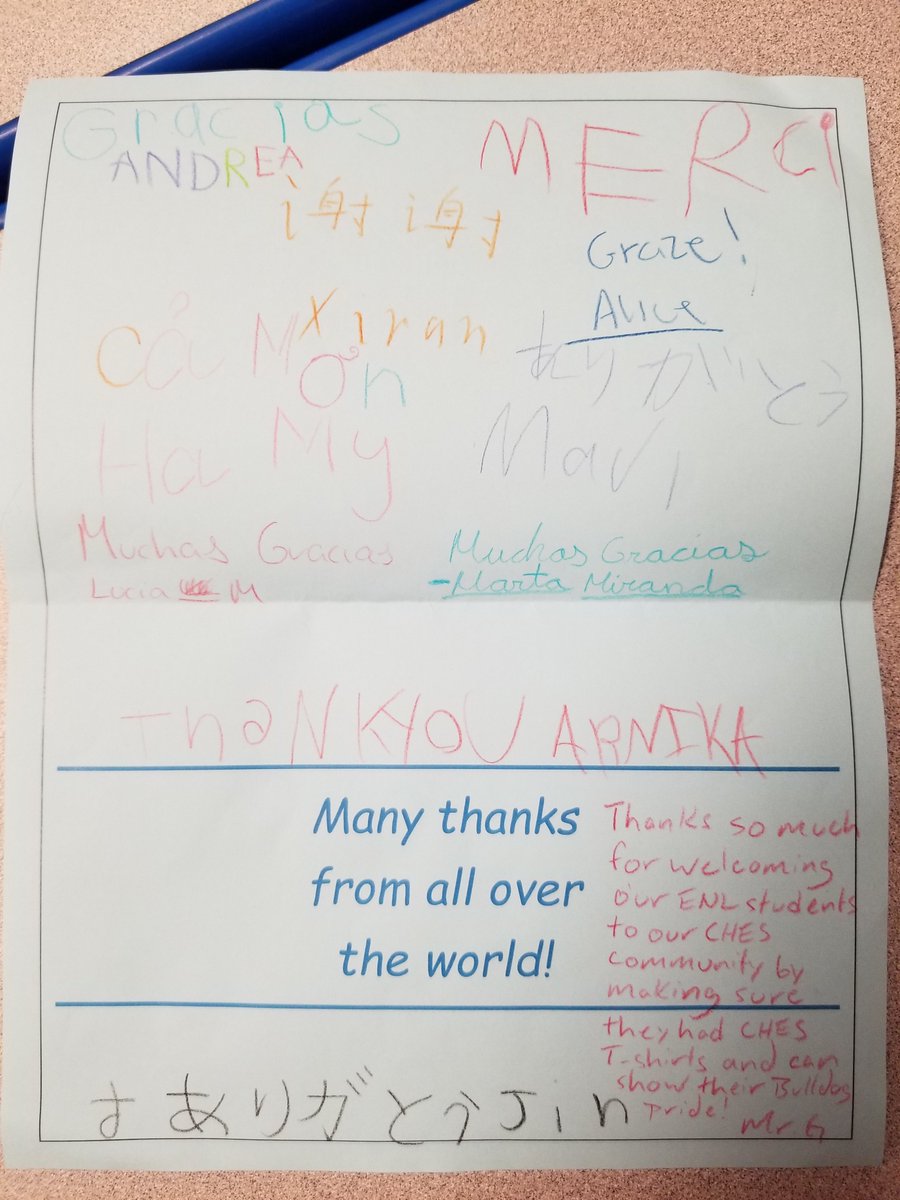 Gracias
ANDREA
MERCi
谢谢
Graze!
Xiran
Alice
Cảm ơn
ありがとう
Ha My
Mavi
Muchas Gracias
Lucia M
Muchas Gracias
-Marta Miranda
ThaNKYOU ARNIKA
Many thanks
from all over
the world!
Thanks so much
for welcoming
our ENL students
to our CHES
community by
making sure
they had CHES
T-shirts and can
show their Bulldog
Pride!
Mr G
ありがとう Jin